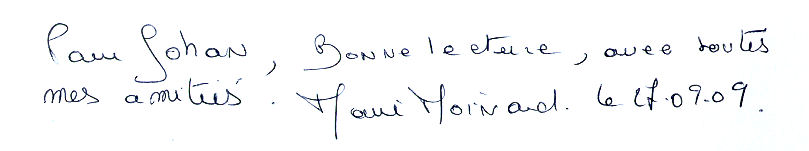 Pour Johan, Bonne lecture, avec toutes
mes amitiés. Marie Moinard. le 27.09.09.